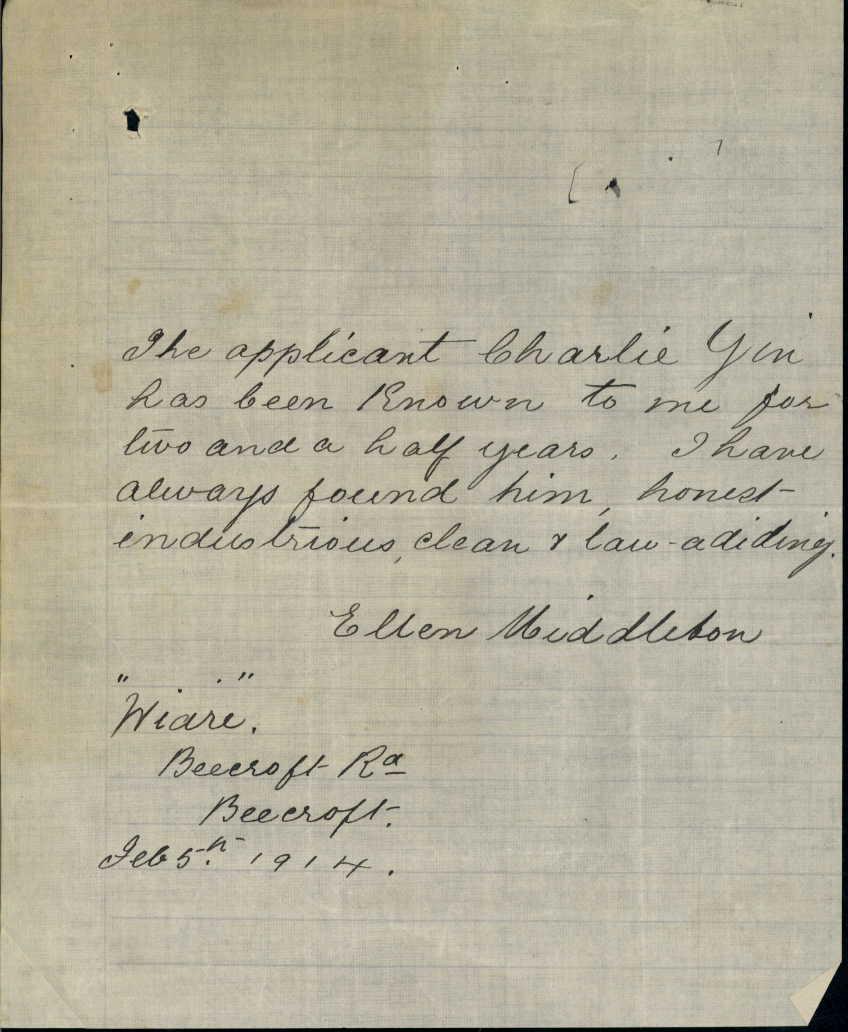 The applicant Charlie Yin
has been Known to me for
two and a half years. I have
always found him, honest
industrious, clean & law-adiding.
Ellen Middleton
"Widre".
Beecroft Rd
Beecroft.
Feb 5th. 1914.